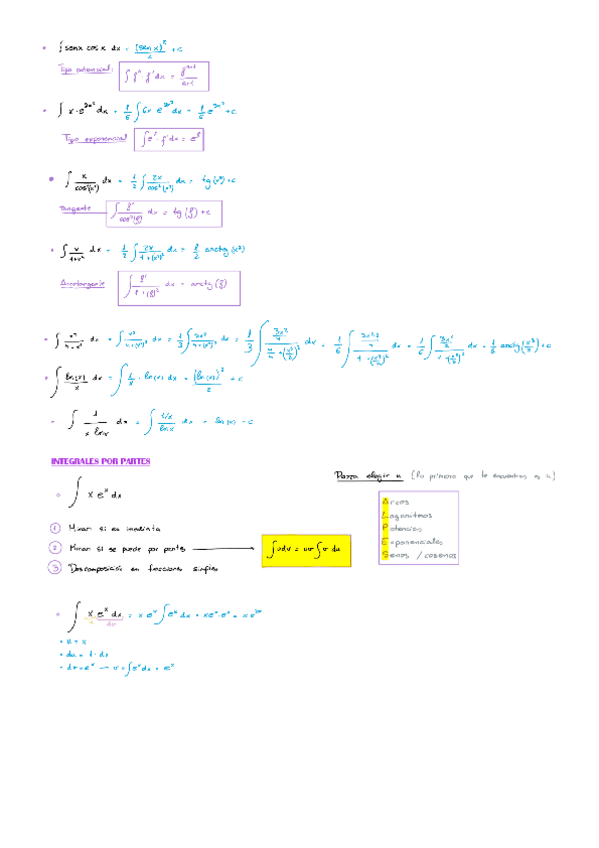 ∫ senx cos x dx = (sen x)² / 2 + c
Tipo potencial: ∫ fⁿ · f' dx = fⁿ⁺¹ / n+1
∫ x · e^(3x²) dx = 1/6 ∫ 6x e^(3x²) dx = 1/6 e^(3x²) + c
Tipo exponencial ∫ e^f · f' dx = e^f
∫ x / cos²(x²) dx = 1/2 ∫ 2x / cos²(x²) dx = tg (x²) + c
Tangente ∫ f' / cos²(f) dx = tg (f) + c
∫ x / 1+x⁴ dx = 1/2 ∫ 2x / 1+(x²)² dx = 1/2 arctg (x²)
Arcotangente ∫ f' / 1+(f)² dx = arctg (f)
∫ ln(x) / x dx = ∫ 1/x · ln(x) dx = (ln(x))² / 2 + c
∫ 1 / x lnx dx = ∫ 1/x / lnx dx =
INTEGRALES POR PARTES
Para elegir u (lo primero que te encuentres es u)
∫ x eˣ dx
Arcos
Logaritmos
Potencias
Exponenciales
Senos / cosenos
1 Mirar si es inmediata
2 Mirar si se puede por partes → ∫ u dv = uv ∫ v du
3 Descomposición en fracciones simples
∫ x eˣ dx = x eˣ ∫ eˣ dx = xeˣ · eˣ = x e²ˣ
dv
• u = x
• du = 1 · dx
• dv = eˣ → v = ∫ eˣ dx = eˣ